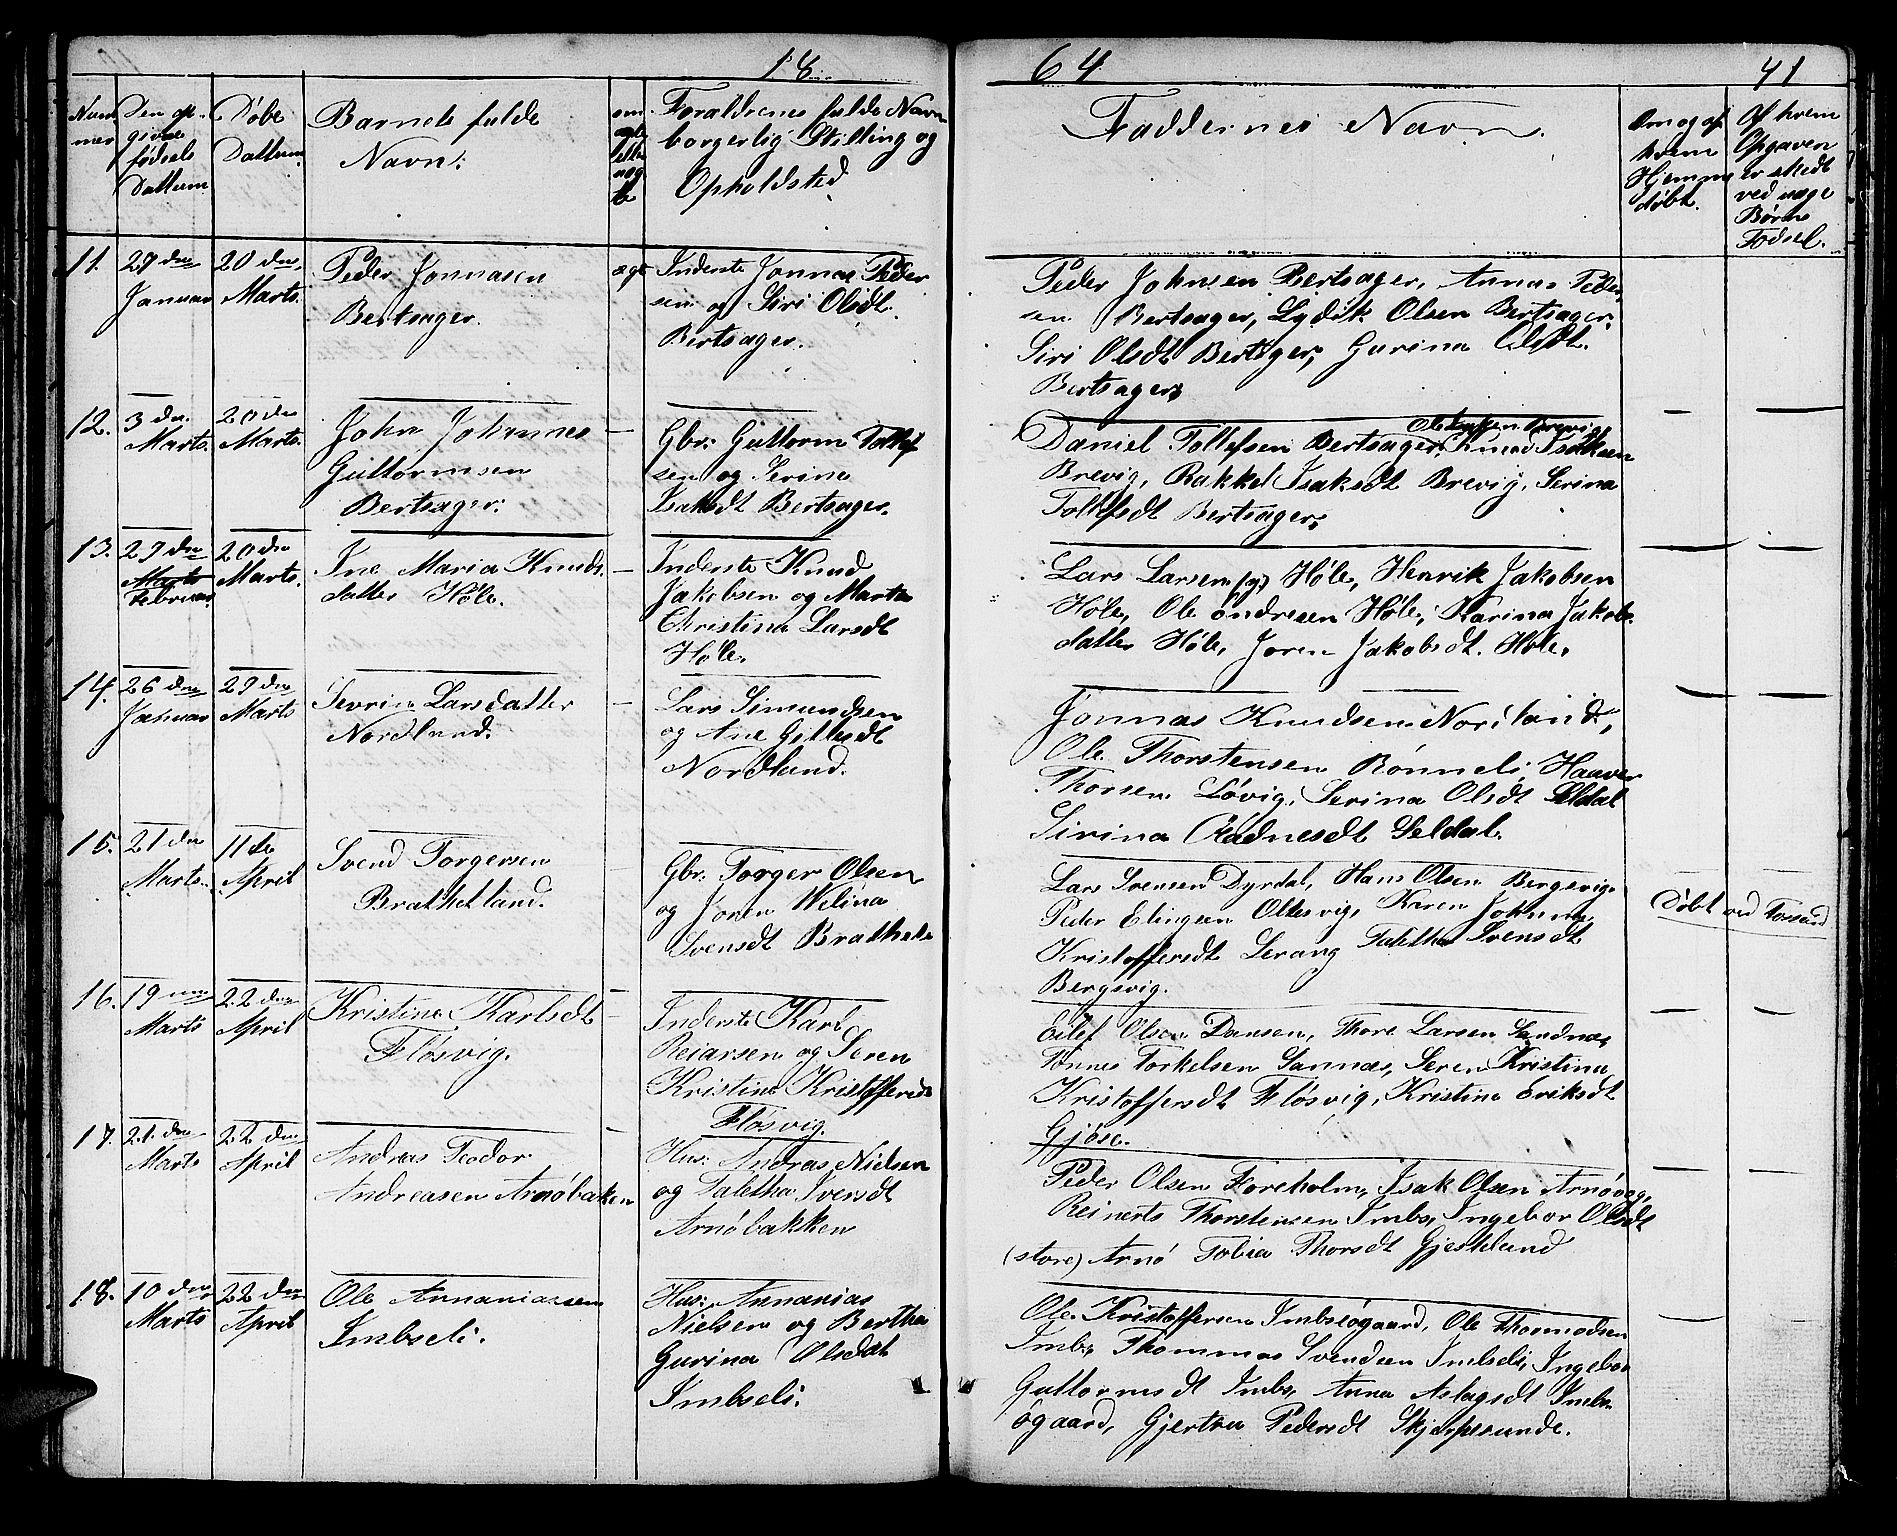 18 64 41
Num mer
Den op-
givne
fødsels
Dattum
Døbe
Dattum.
Barnets fulde
Navn:
om
ægte
eller
uæg
te
Foraldrenes fulde Navn
borgerlig Stilling og
Opholdsted
Faddernes Navn.
Om og af
hvem
Hjemme
døbt.
Af hvem
Opgaven
er skedt
ved uægte
Børns
Fødsel.
11. 27 den
Januar
20 den
Marts.
Peder Jonnasen
Bertsager.
ægt
Inderste Jonnas Peder
sen og Siri Olsdt.
Bertsager.
Peder Johnsen Bertsager, Annas Peder
sen Bertsager, Lydik Olsen Bertsager,
Siri Olsdt Bertsger, Gurina Olsdt.
Bertsager,
12. 3 den
Marts.
20 den
Marts.
John Johannes
Guttormsen
Bertsager.
—
Gbr: Guttorm Tollef
sen og Serine
Isaksdt Bertsager.
Daniel Tollefsen Bertsager, Knud Isaksen
Brevig, Rakkel Isaksdt Brevig, Serina
Tollefsdt Bertsager,
13. 29 den
Marts
Februar.
20 den
Marts.
Ine Maria Knuds
datter Høle.
—
Inderste Knud
Jakobsen og Marta
Christina Larsdt
Høle.
Lars Larsen (yg) Høle, Henrik Jakobsen
Høle, Ole Øndresen Høle, Karina Jakobs
datter Høle, Joren Jakobsdt. Høle.
14. 26 den
Januar
29 den
Marts
Sevrine Larsdatter
Nordland.
—
Lars Simundsen
og Ane Gittesdt
Nordland.
Jonnas Knudsen Nordland,
Ole Thorstensen Rønneli, Haaver
Thorsen Løvig, Serina Olsdt Seldal
Sirina Aadnesdt Seldal.
15. 21 den
Marts.
11te
April
Svend Torgersen
Brathetland.
Gbr: Torger Olsen
og Joren Welina
Svensdt Brathetl
Lars Svensen Dyrdal, Hans Olsen Bergsvig.
Peder Elingsen Oltesvig, Karen Johnne
Kristoffersdt Lerang Taletha Svensdt
Bergsvig.
Døbt ved Forsand
16. 19 nne
Marts
22 den
April
Kristine Karlsdt
Fløsvig.
—
Inderste Karl
Reiarsen og Seren
Kristine Kristoffersd
Fløsvig.
Eilef Olsen Dansen, Thore Larsen Sandnæs,
Tønnes Torkelsen Sannæs, Seren Kristina
Kristoffersdt Fløsvig, Kristine Eriksdt
Gjøse.
17. 21. den
Marts
22 den
April
Andreas Teodor
Andreasen Arnøbaken
—
Hus: Andras Nielsen
og Taletha Svensdt
Arnøbakken
Peder Olsen Foreholm, Isak Olsen Arnøvog,
Reinerts Thorstensen Imbs, Ingebor Olsdt
(store) Arnø Tobia Thorsdt Gjesteland
18. 10 den
Marts
22 den
April
Ole Annaniassen
Imbseli.
Hus: Annanias
Nielsen og Bertha
Gurina Olsdat
Imbseli.
Ole Kristoffersen Imbsøgaard, Ole Thormodsen
Imbs, Thommas Svendsen Imbseli, Ingebor
Guttormsdt Imbs, Anna Aslagsdt Imbs
øgaard, Gjertru Pedersdt Skjæpesunde.